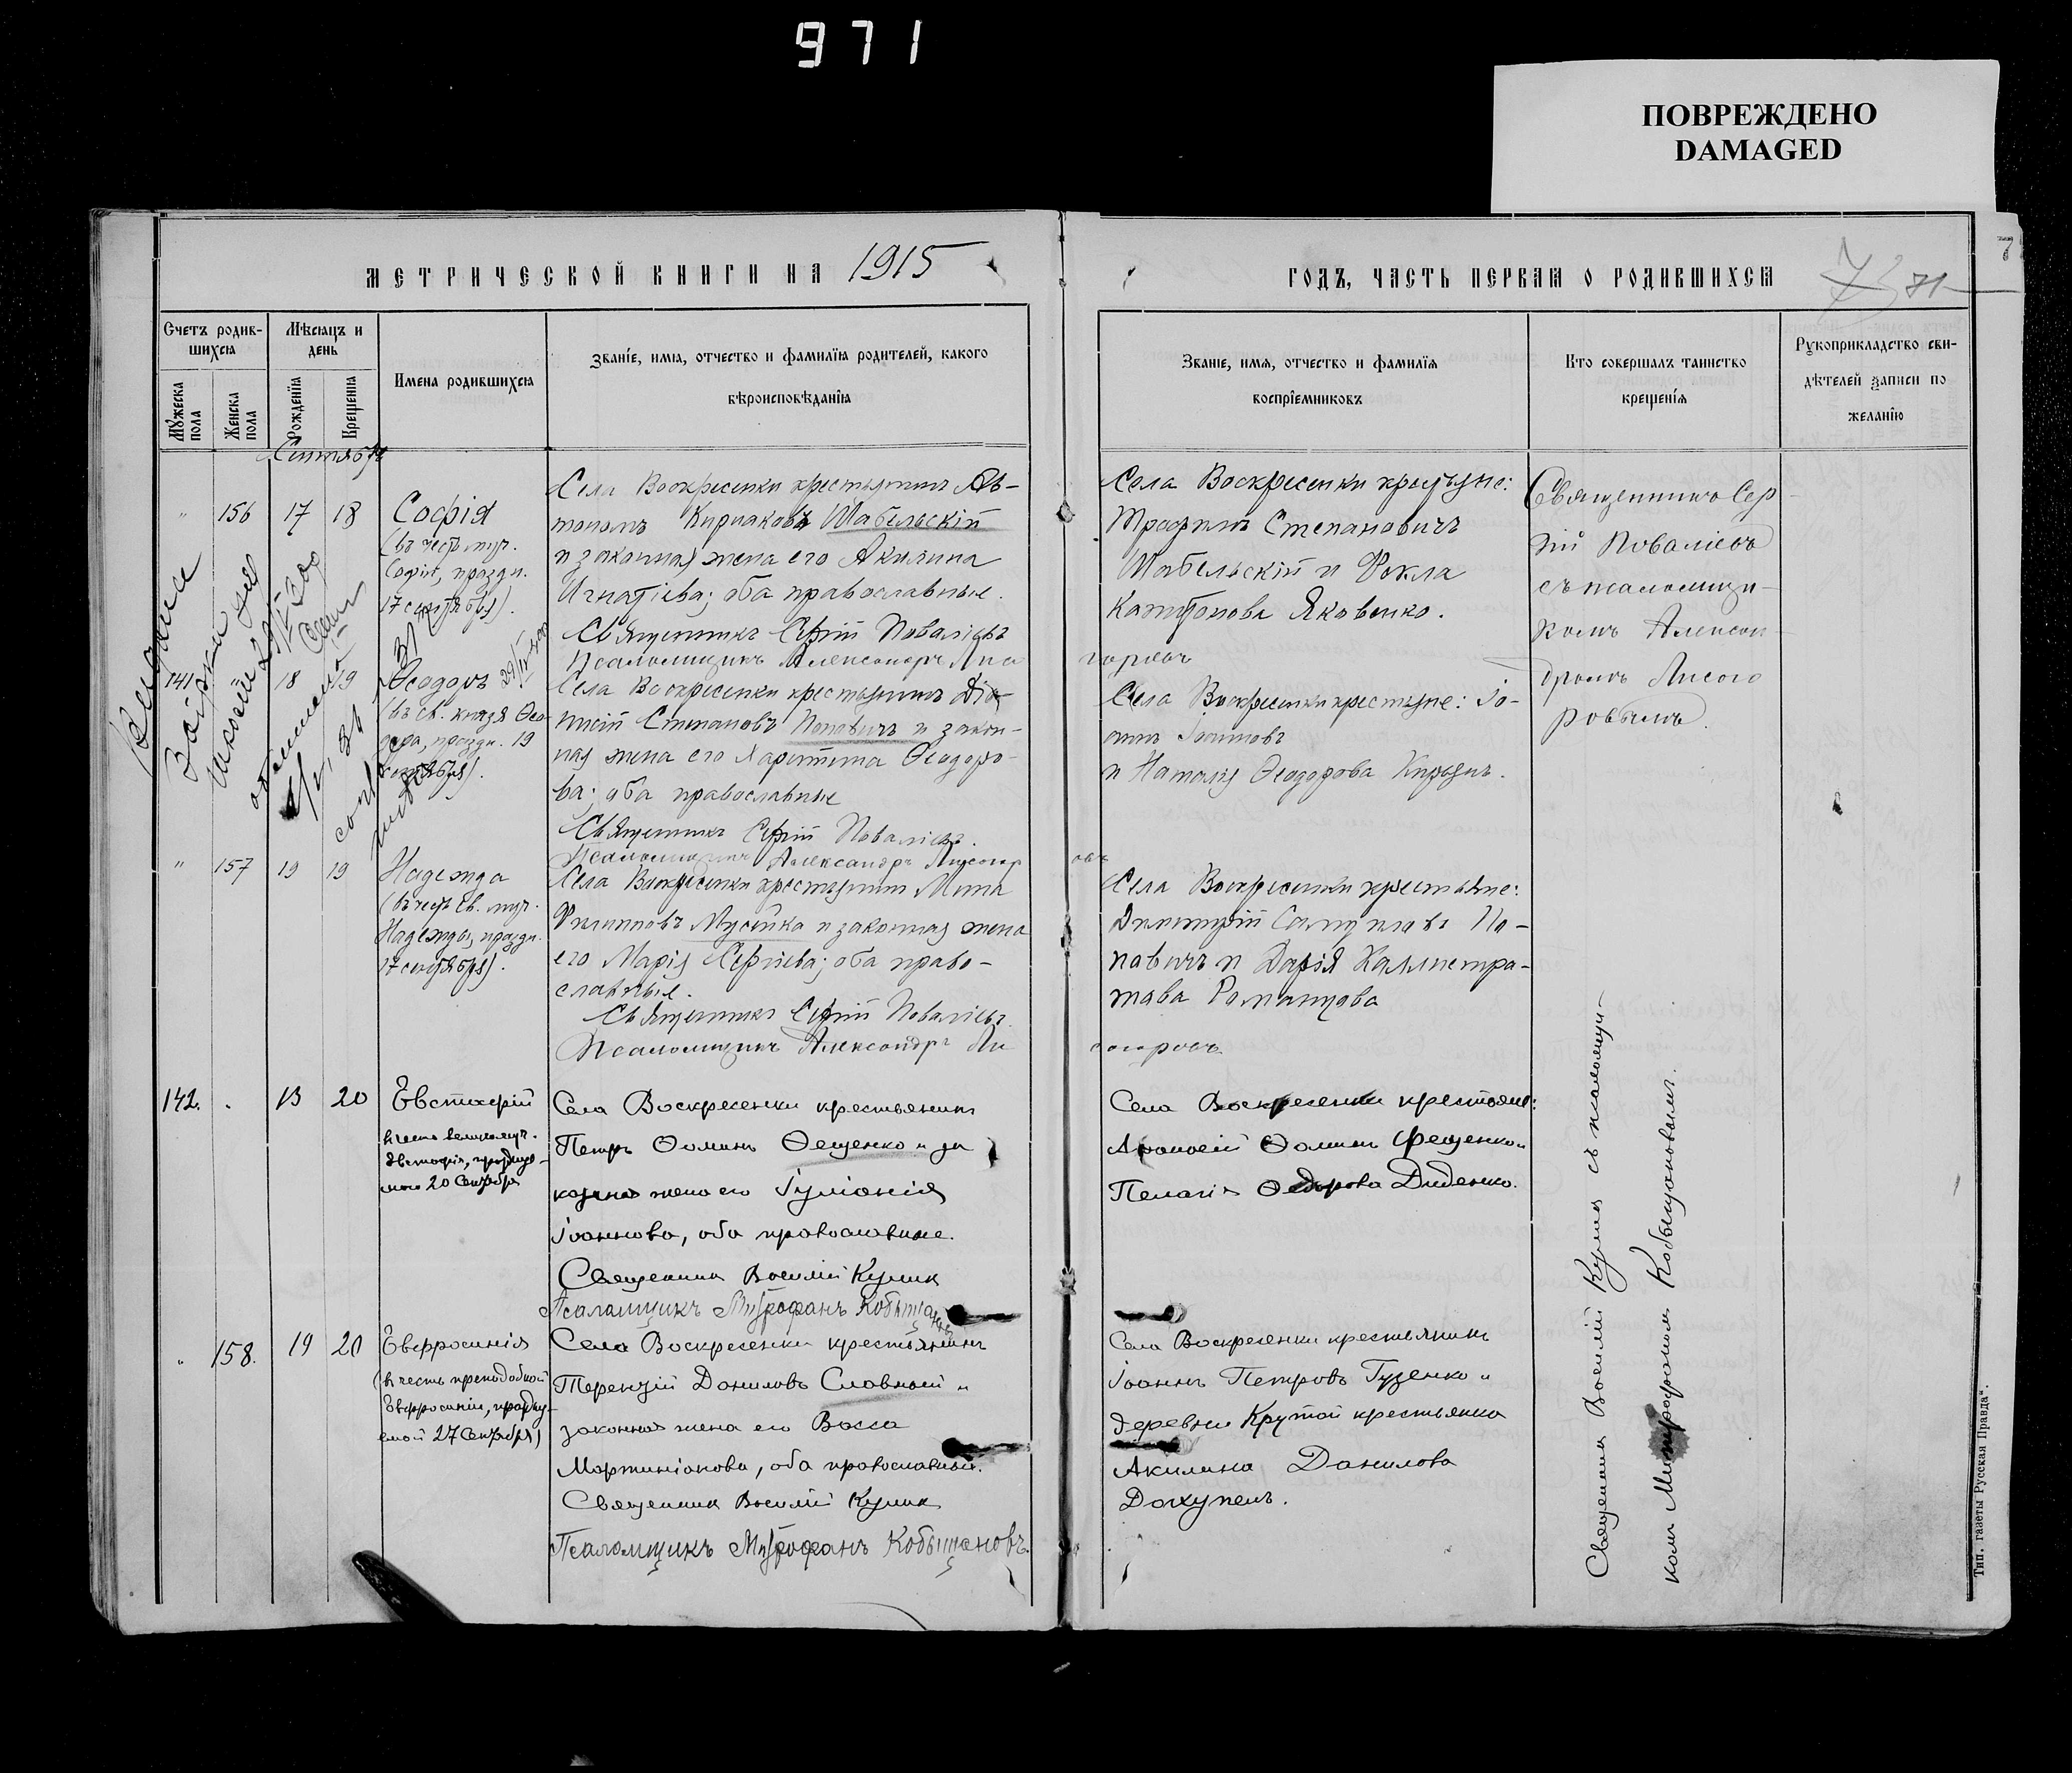 971
ПОВРЕЖДЕНО
DAMAGED
МЕТРИЧЕСКОЙ КНИГИ НА 1915
ГОДЪ, ЧАСТЬ ПЕРВАЯ О РОДИВШИХСЯ
71
Счетъ родив-
шихся
Мѣсяцъ и
день
Мужеска пола
Женска пола
Рожденія
Крещенія
Имена родившихся
Званіе, имя, отчество и фамилія родителей, какого
вѣроисповѣданія
Званіе, имя, отчество и фамилія
воспріемниковъ
Кто совершалъ таинство
крещенія
Рукоприкладство сви-
дѣтелей записи по
желанію
Сентябрь
" 156 17 18
Софія
(въ честь муч.
Софіи, праздн.
17 сентября).
Села Воскресенки крестьянинъ Ав-
тономъ Киріаковъ Шабельскій
и законная жена его Акилина
Игнатіева; оба православные.
Священникъ Сергій Поваліевъ
Псаломщикъ Александръ Лисо
горовъ
Села Воскресенки крестьяне:
Трофимъ Степановичъ
Шабельскій и Ѳекла
Харитонова Яковенко.
Священникъ Сер-
гій Поваліевъ
съ псаломщи-
комъ Алексан-
дромъ Лисого
ровымъ.
141 18 19
Ѳеодоръ
(въ св. князя Ѳео-
дора, праздн. 19
сентября).
Села Воскресенки крестьянинъ Діо-
нисій Степановъ Поповичъ и закон-
ная жена его Харитина Ѳеодоро-
ва; оба православные
Священникъ Сергій Поваліевъ.
Псаломщикъ Александръ Лисогор
овъ
Села Воскресенки крестьяне: Іо-
аннъ
и Наталія Ѳеодорова
" 157 19 19
Надежда
(въ честь св. муч.
Надежды, праздн.
17 сентября).
Села Воскресенки крестьянинъ Мина
Филипповъ Мусейка и законная жена
его Марія Сергіева; оба право-
славные.
Священникъ Сергій Поваліевъ.
Псаломщикъ Александръ Ли
согоровъ
Села Воскресенки крестьяне:
Димитрій Самуиловъ По-
повичъ и Дарія Каллистра-
това Романцова
142. . 13 20
Евстафій
въ честь великомуч.
Евстафія, празднуе-
маго 20 Сентября
Села Воскресенки крестьянинъ
Петръ Ѳоминъ Ѳещенко и за
конная жена его Іуліанія
Іоаннова, оба православные.
Священникъ Василій Куликъ
Псаломщикъ Митрофанъ Кобыщановъ
Села Воскресенки крестьяне:
Ѳоминъ Фещенко и
Пелагія Ѳедорова Диденко.
" 158. 19 20
Евфросинія
(въ честь преподобной
Евфросиніи, праздну-
емой 27 Сентября)
Села Воскресенки крестьянинъ
Терентій Даниловъ Славный и
законная жена его Васса
Мартиніанова, оба православные.
Священникъ Василій Куликъ
Псаломщикъ Митрофанъ Кобыщановъ.
Села Воскресенки крестьянинъ
Іоаннъ Петровъ Гузенко и
деревни Крутой крестьянка
Акилина Данилова
Священникъ Василій Куликъ съ псаломщи-
комъ Митрофаномъ Кобыщановымъ.
Тип. газеты „Русская Правда“.